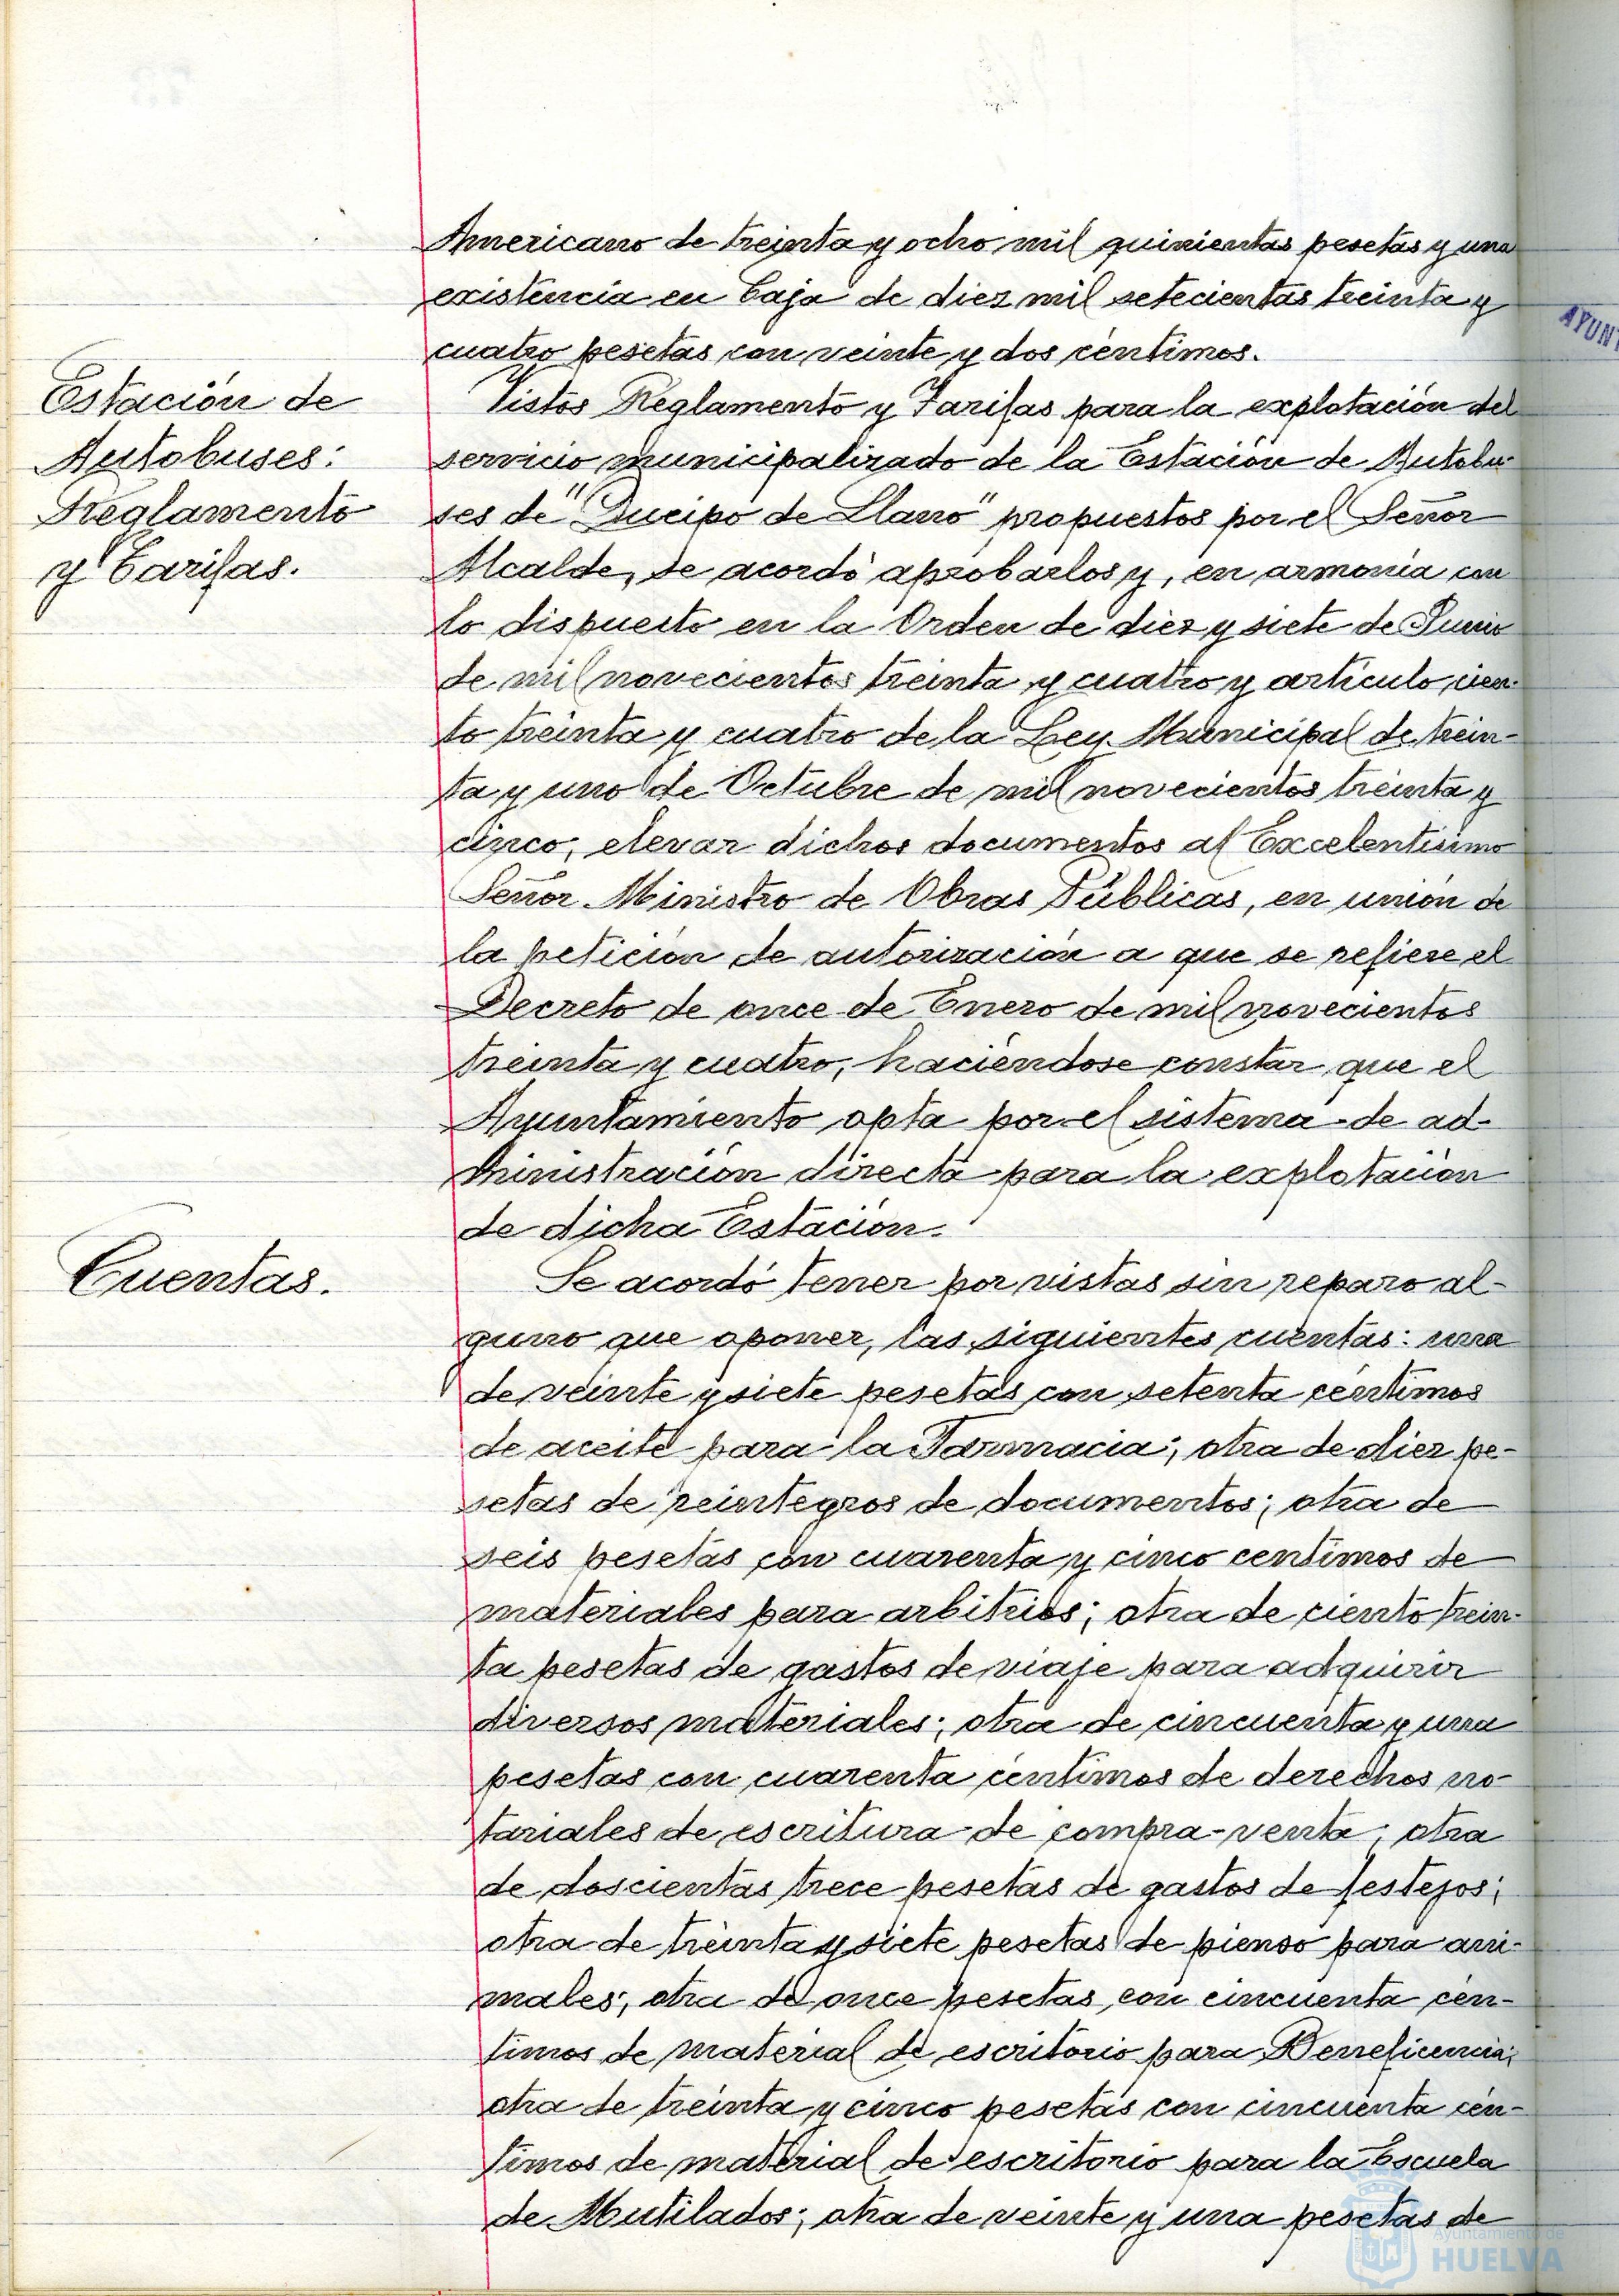 Americano de treinta y ocho mil quinientas pesetas y una
existencia en Caja de diez mil setecientas treinta y
cuatro pesetas con veinte y dos céntimos.
Estación de
Autobuses:
Reglamento
y Tarifas.
Vistos Reglamento y Tarifas para la explotación del
servicio municipalizado de la Estación de Autobu-
ses de "Queipo de Llano" propuestos por el Señor
Alcalde, se acordó aprobarlos y, en armonía con
lo dispuesto en la Orden de diez y siete de Junio
de mil novecientos treinta y cuatro y artículo cien-
to treinta y cuatro de la Ley Municipal de trein-
ta y uno de Octubre de mil novecientos treinta y
cinco, elevar dichos documentos al Excelentísimo
Señor Ministro de Obras Públicas, en unión de
la petición de autorización a que se refiere el
Decreto de once de Enero de mil novecientos
treinta y cuatro, haciéndose constar que el
Ayuntamiento opta por el sistema de ad-
ministración directa para la explotación
de dicha Estación.
Cuentas.
Se acordó tener por vistas sin reparo al-
guno que oponer, las siguientes cuentas: una
de veinte y siete pesetas con setenta céntimos
de aceite para la Farmacia; otra de diez pe-
setas de reintegros de documentos; otra de
seis pesetas con cuarenta y cinco centimos de
materiales para arbitrios; otra de ciento trein-
ta pesetas de gastos de viaje para adquirir
diversos materiales; otra de cincuenta y una
pesetas con cuarenta céntimos de derechos no-
tariales de escritura de compra-venta; otra
de doscientas trece pesetas de gastos de festejos;
otra de treinta y siete pesetas de pienso para ani-
males; otra de once pesetas con cincuenta cén-
timos de material de escritorio para Beneficencia;
otra de treinta y cinco pesetas con cincuenta cén-
timos de material de escritorio para la Escuela
de Mutilados; otra de veinte y una pesetas de
AYUNT
Ayuntamiento de
HUELVA